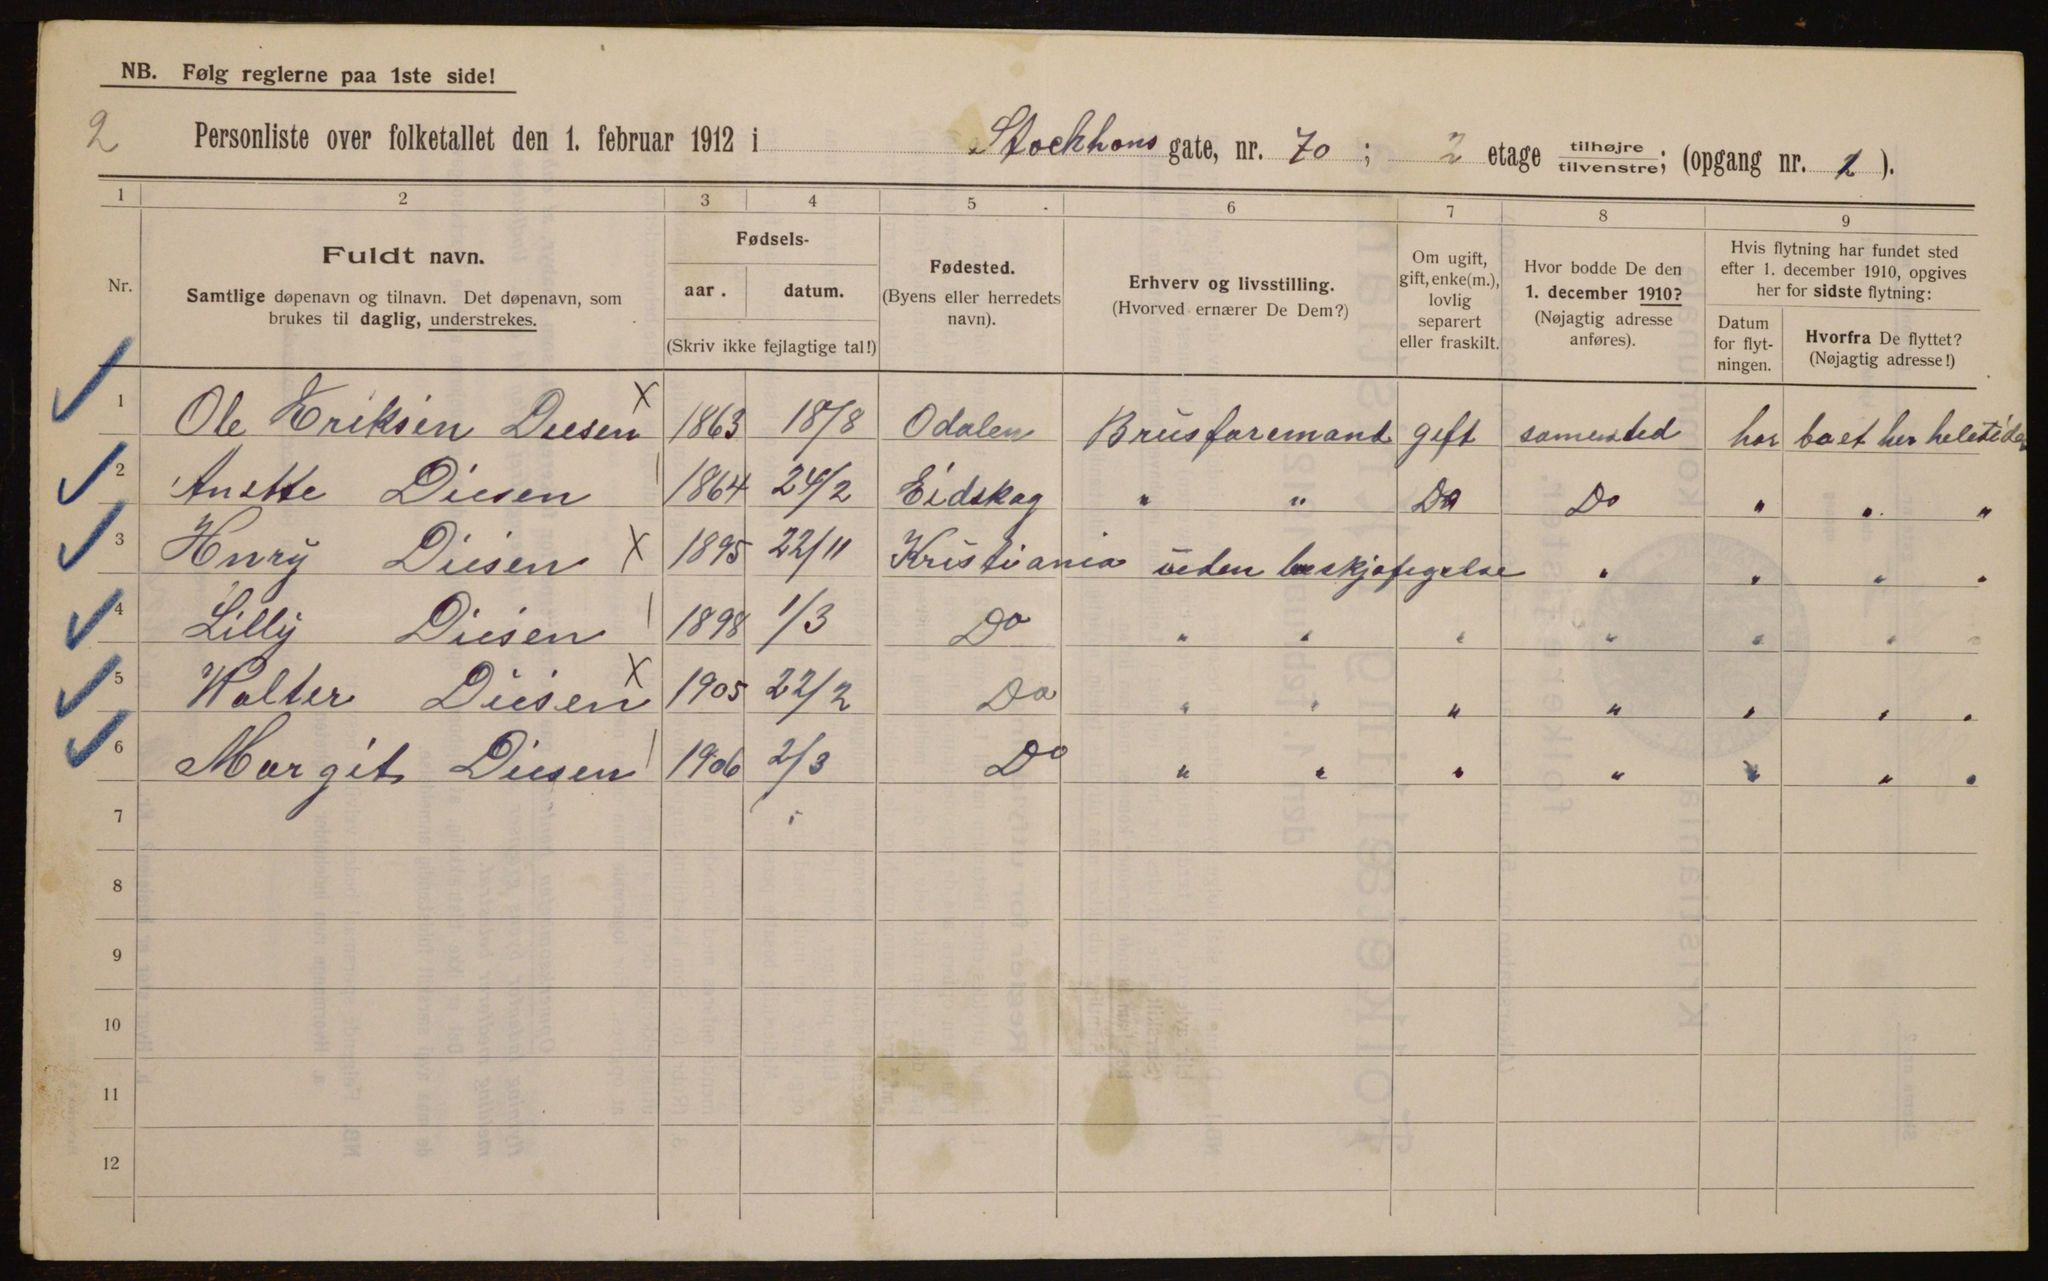 NB. Følg reglerne paa 1ste side!
2 Personliste over folketallet den 1. februar 1912 i Stockhons gate, nr. 70 ; 2 etage tilhøjre/tilvenstre; (opgang nr. 1 ).
1 2 3 4 5 6 7 8 9
Nr.
Fuldt navn.
Samtlige døpenavn og tilnavn. Det døpenavn, som
brukes til daglig, understrekes.
Fødsels-
aar. datum.
(Skriv ikke fejlagtige tal!)
Fødested.
(Byens eller herredets
navn).
Erhverv og livsstilling.
(Hvorved ernærer De Dem?)
Om ugift,
gift, enke(m.),
lovlig
separert
eller fraskilt.
Hvor bodde De den
1. december 1910?
(Nøjagtig adresse
anføres).
Hvis flytning har fundet sted
efter 1. december 1910, opgives
her for sidste flytning:
Datum
for flyt-
ningen.
Hvorfra De flyttet?
(Nøjagtig adresse!)
1 Ole Eriksen Diesen X 1863 18/8 Odalen Brusforemand gift samested har boet her heletiden
2 Anette Diesen 1864 24/2 Eidskog " " Do Do " " "
3 Henry Diesen X 1895 22/11 Kristiania uden beskjæfigelse " " " "
4 Lilly Diesen 1898 1/3 Do " " " " " " "
5 Walter Diesen X 1905 22/2 Do " " " " " " "
6 Margit Diesen 1906 2/3 Do " " " " " " "
7
8
9
10
11
12